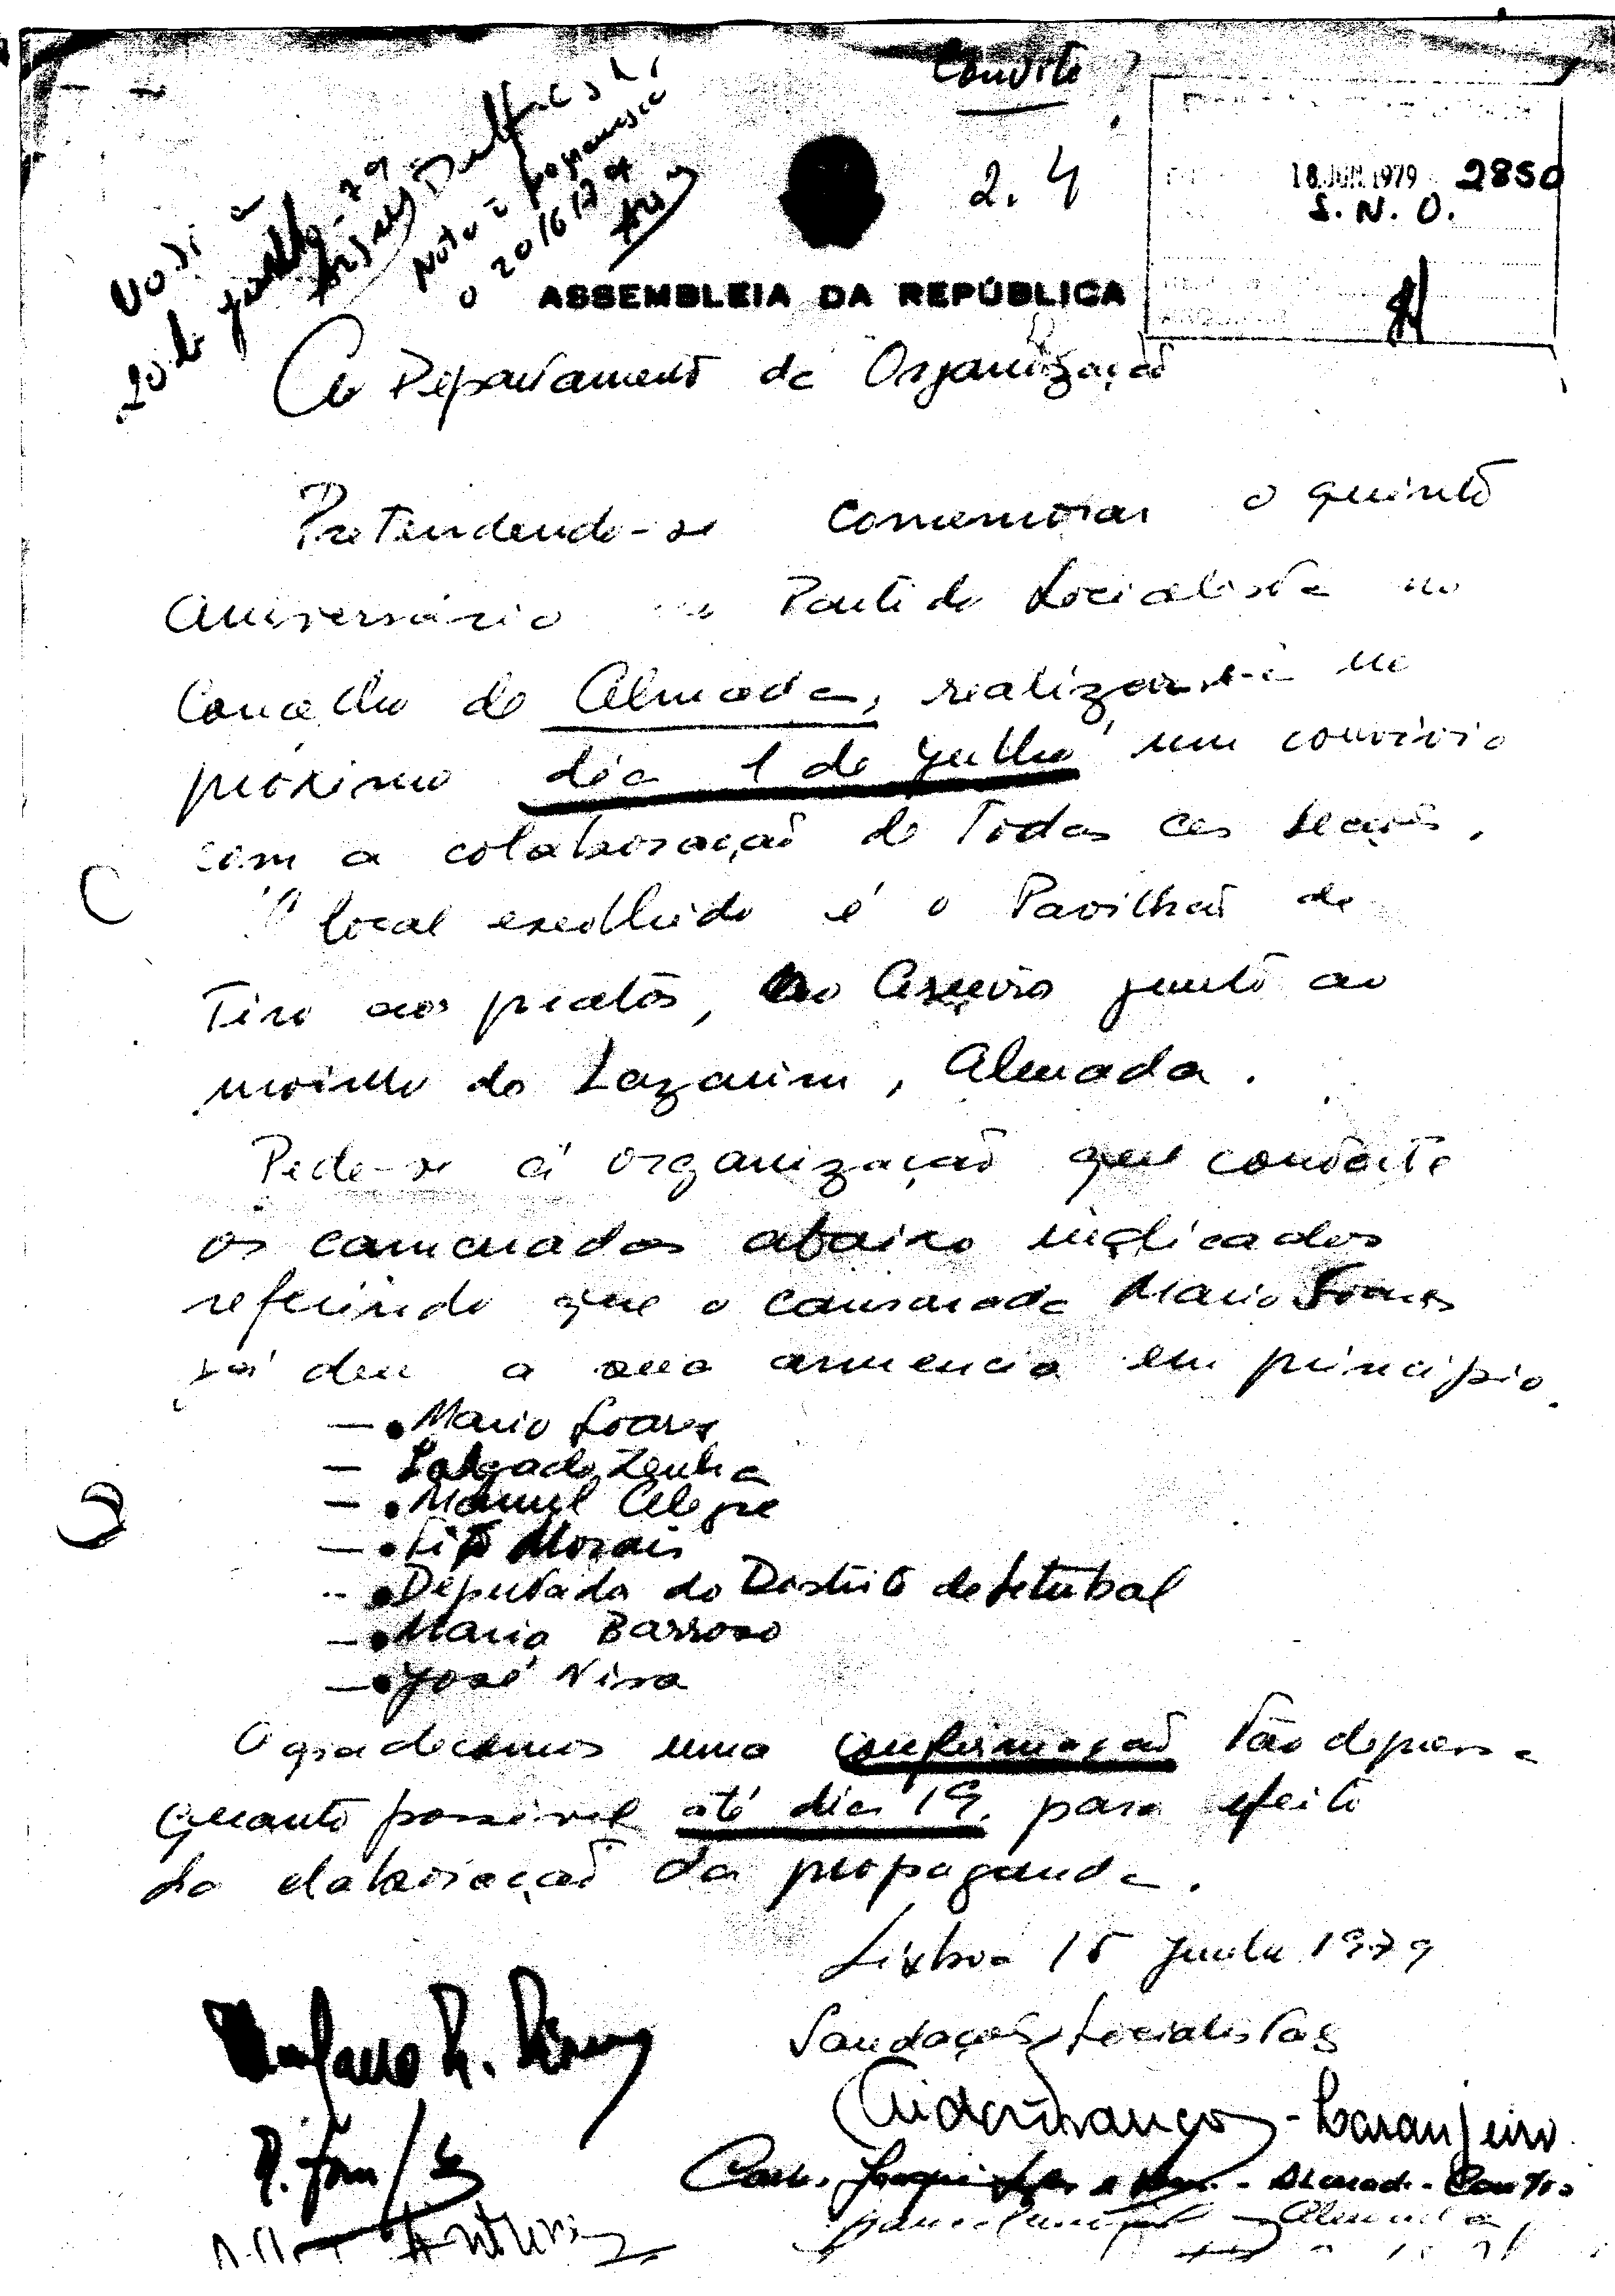 Convite
2.4
18.JUN.1979 2850
S.N.O.
Nota
20/6/79
ASSEMBLEIA DA REPÚBLICA
Ao Departamento de Organização
Pretendendo-se comemorar o quinto
aniversário Partido Socialista no
Concelho de Almada, realizar-se-á no
próximo dia 1 de Julho um convívio
com a colaboração de todas as secções.
O local escolhido é o Pavilhão de
Tiro aos pratos, junto ao
moinho do Lazarim, Almada.
Pede-se à organização que convite
os camaradas abaixo indicados
referindo que o camarada Mario Soares
já deu a sua anuencia em principio.
— • Mario Soares
— Salgado Zenha
— • Manuel Alegre
— • Tito Morais
— • Deputado do Distrito de Setubal
— • Maria Barroso
— • José Niza
Agradecemos uma confirmação tão depressa
quanto possivel até dia 19, para efeito
da elaboração da propaganda.
Lisboa 15 Junho 1979
Saudações Socialistas
- Laranjeiro
- Almada